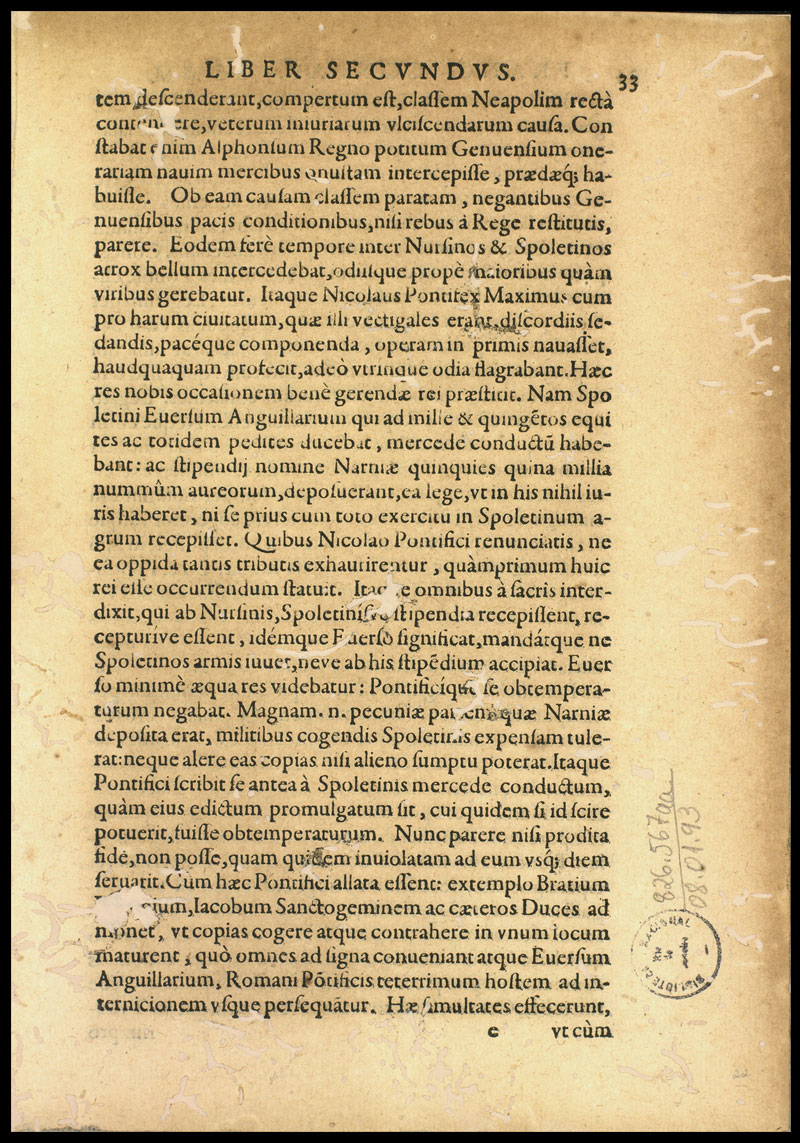 LIBER SECVNDVS.
33
tem descenderant, compertum est, classem Neapolim rectà
veterum iniuriarum vlciscendarum causa. Con
stabat enim Alphonsum Regno potitum Genuensium one-
rariam nauim mercibus onustam intercepisse, prædæq; ha-
buisse. Ob eam causam classem paratam, negantibus Ge-
nuensibus pacis conditionibus, nisi rebus à Rege restitutis,
parere. Eodem ferè tempore inter Nursinos & Spoletinos
atrox bellum intercedebat, odiisque propè maioribus quàm
viribus gerebatur. Itaque Nicolaus Pontifex Maximus cum
pro harum ciuitatum, quæ illi vectigales erant, discordiis se-
dandis, pacéque componenda, operam in primis nauasset,
haudquaquam profecit, adeò vtrinque odia flagrabant. Hæc
res nobis occasionem benè gerendæ rei præstitit. Nam Spo
letini Euersum Anguillarium qui ad mille & quingẽtos equi
tes ac totidem pedites ducebat, mercede conductũ habe-
bant: ac stipendij nomine Narniæ quinquies quina millia
nummûm aureorum, deposuerant, ea lege, vt in his nihil iu-
ris haberet, ni se prius cum toto exercitu in Spoletinum a-
grum recepisset. Quibus Nicolao Pontifici renunciatis, ne
ea oppida tantis tributis exhaurirentur, quàmprimum huic
rei esse occurrendum statuit. omnibus à sacris inter-
dixit, qui ab Nursinis, Spoletinisve stipendia recepissent, re-
cepturive essent, idémque Euerso significat, mandátque ne
Spoletinos armis iuuet, neve ab his stipẽdium accipiat. Euer
so minimè æqua res videbatur: Pontificíque se obtempera-
turum negabat. Magnam. n. pecuniæ partem quæ Narniæ
deposita erat, militibus cogendis Spoletinis expensam tule-
rat: neque alere eas copias nisi alieno sumptu poterat. Itaque
Pontifici scribit se antea à Spoletinis mercede conductum,
quàm eius edictum promulgatum sit, cui quidem si id scire
potuerit, fuisse obtemperaturum. Nunc parere nisi prodita
fide, non posse, quam quidem inuiolatam ad eum vsq; diem
seruarit. Cùm hæc Pontifici allata essent: extemplo Bratium
Iacobum Sanctogeminem ac cæteros Duces ad
monet, vt copias cogere atque contrahere in vnum locum
maturent; quò omnes ad signa conueniant atque Euersum
Anguillarium, Romani Põtificis teterrimum hostem ad in-
ternicionem vsque persequãtur. Hæ simultates effecerunt,
e vt cùm
826.567aa
08.01.93
BIBLIOTECA NACIONAL